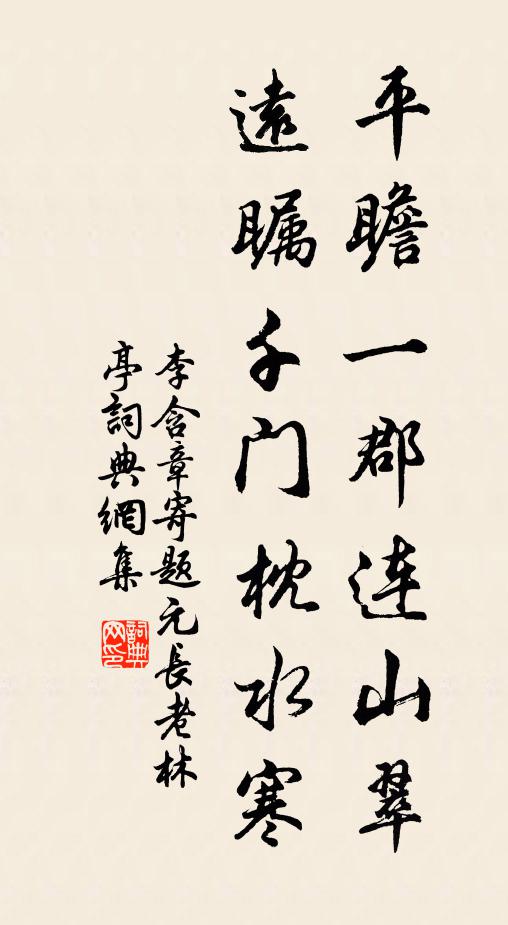 平瞻一郡连山翠
遠瞩千门枕水寒
李含章寄题元長老林
亭詞典網集
詞典
网印